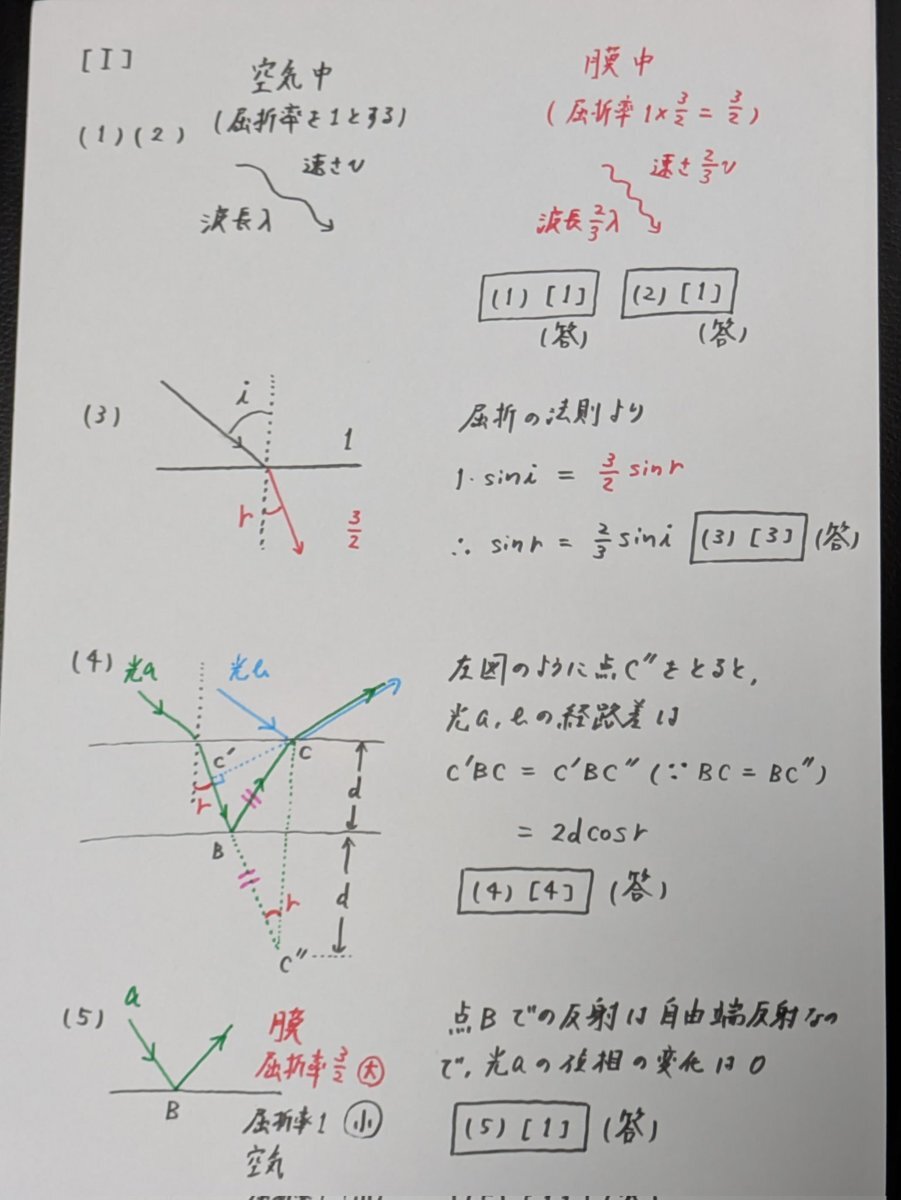 [I]
空気中
膜中
(1)(2)
(屈折率を1とする)
(屈折率1×3/2=3/2)
速さv
速さ2/3v
波長λ
波長2/3λ
(1)[1]
(2)[1]
(答)
(答)
(3)
i
1
r
3/2
屈折の法則より
1・sini = 3/2 sinr
∴ sinr = 2/3 sini (3)[3] (答)
(4)
光a
光b
C'
C
r
B
d
r
d
C''
左図のように点C''をとると,
光a,bの経路差は
C'BC = C'BC'' (∵ BC = BC'')
= 2dcosr
(4)[4] (答)
(5)
a
B
膜
屈折率3/2 大
屈折率1 小
空気
点Bでの反射は自由端反射なの
で,光aの位相の変化は0
(5)[1] (答)